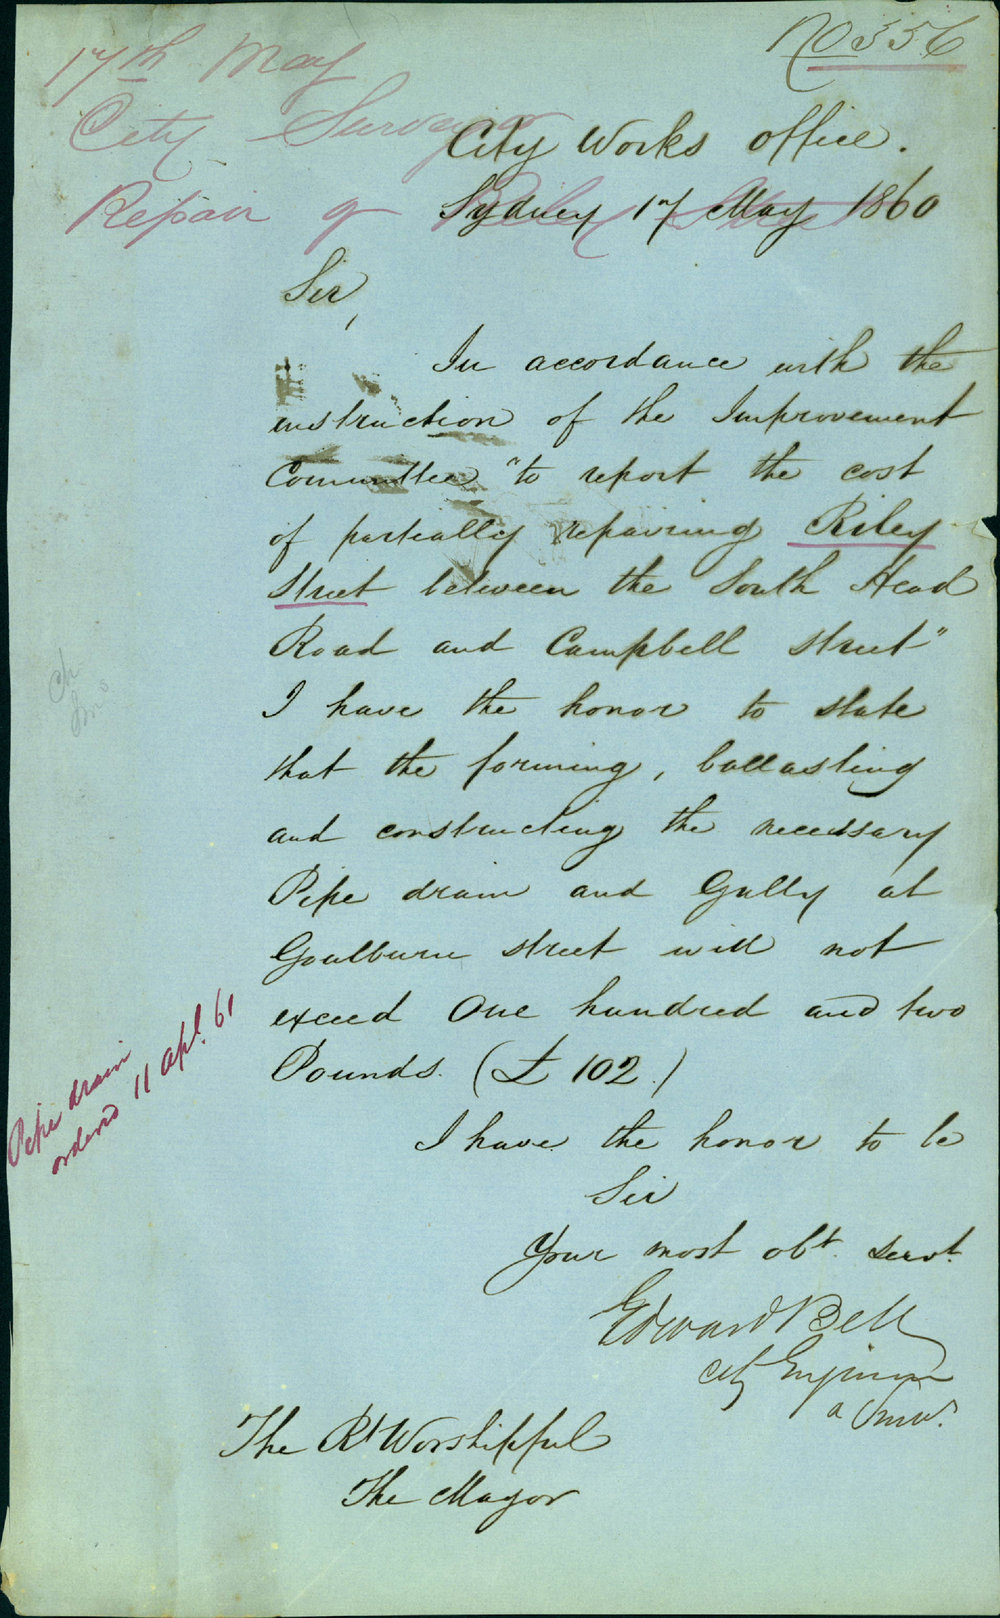 No 356
17th May
City Surveyor
Repair of Riley Street
City Works Office.
Sydney 17 May 1860
Sir,
In accordance with the
instruction of the Improvement
Committee "to report the cost
of partially repairing Riley
Street between the South Head
Road and Campbell Street"
I have the honor to state
that the forming, ballasting
and constructing the necessary
Pipe drain and Gully at
Goulburn Street will not
exceed One hundred and two
Pounds. (£ 102.)
I have the honor to be
Sir
Your most obt. Servt.
Edward Bell
City Engineer
The Rt Worshipful
The Mayor
Pipe drain
ordered 11 Apl. 61